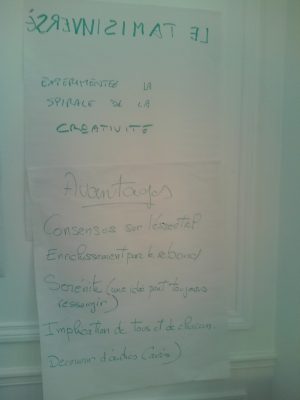 LE TAMIS INVERSÉ
EXPERIMENTER LA
SPIRALE DE LA
CREATIVITÉ
Avantages
Consensus sur l'essentiel
Enrichissement par le rebond
Sérénité (une idée peut toujours
ressurgir)
Implication de tous et de chacun
Découvrir d'autres